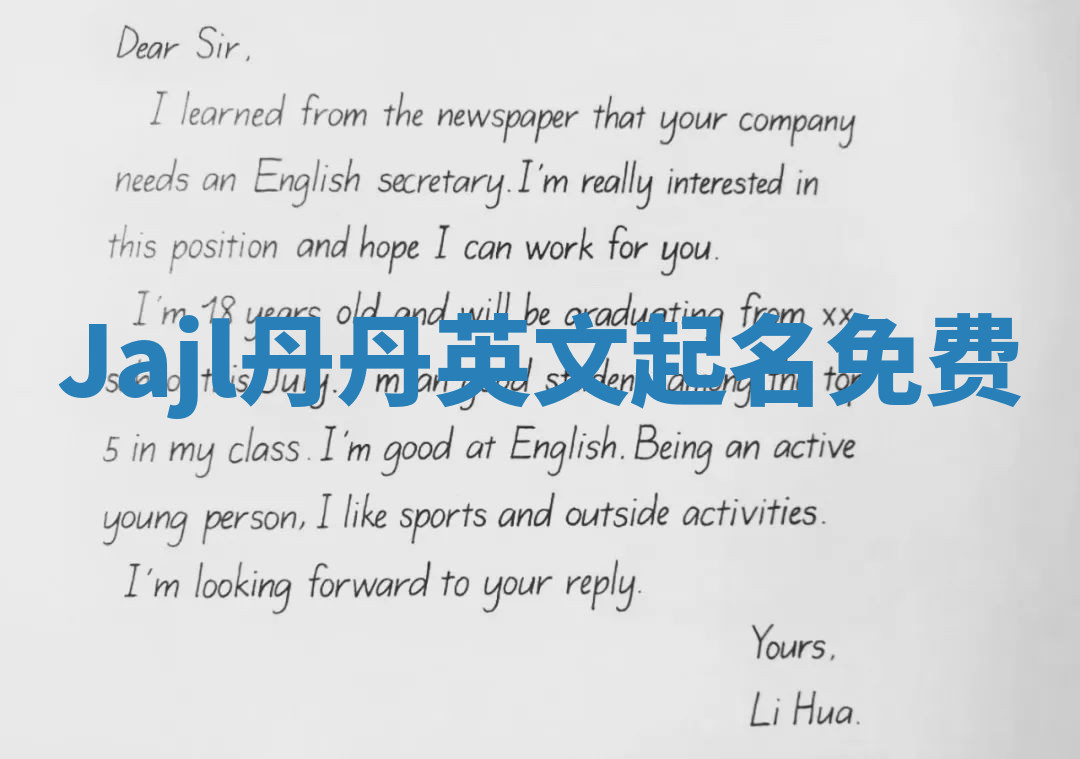 Dear Sir,
I learned from the newspaper that your company
needs an English secretary. I'm really interested in
this position and hope I can work for you.
I'm 18 years old and will be graduating from xx
Jajl丹丹英文起名免费
this July. I'm an good student among the top
5 in my class. I'm good at English. Being an active
young person, I like sports and outside activities.
I'm looking forward to your reply.
Yours,
Li Hua.